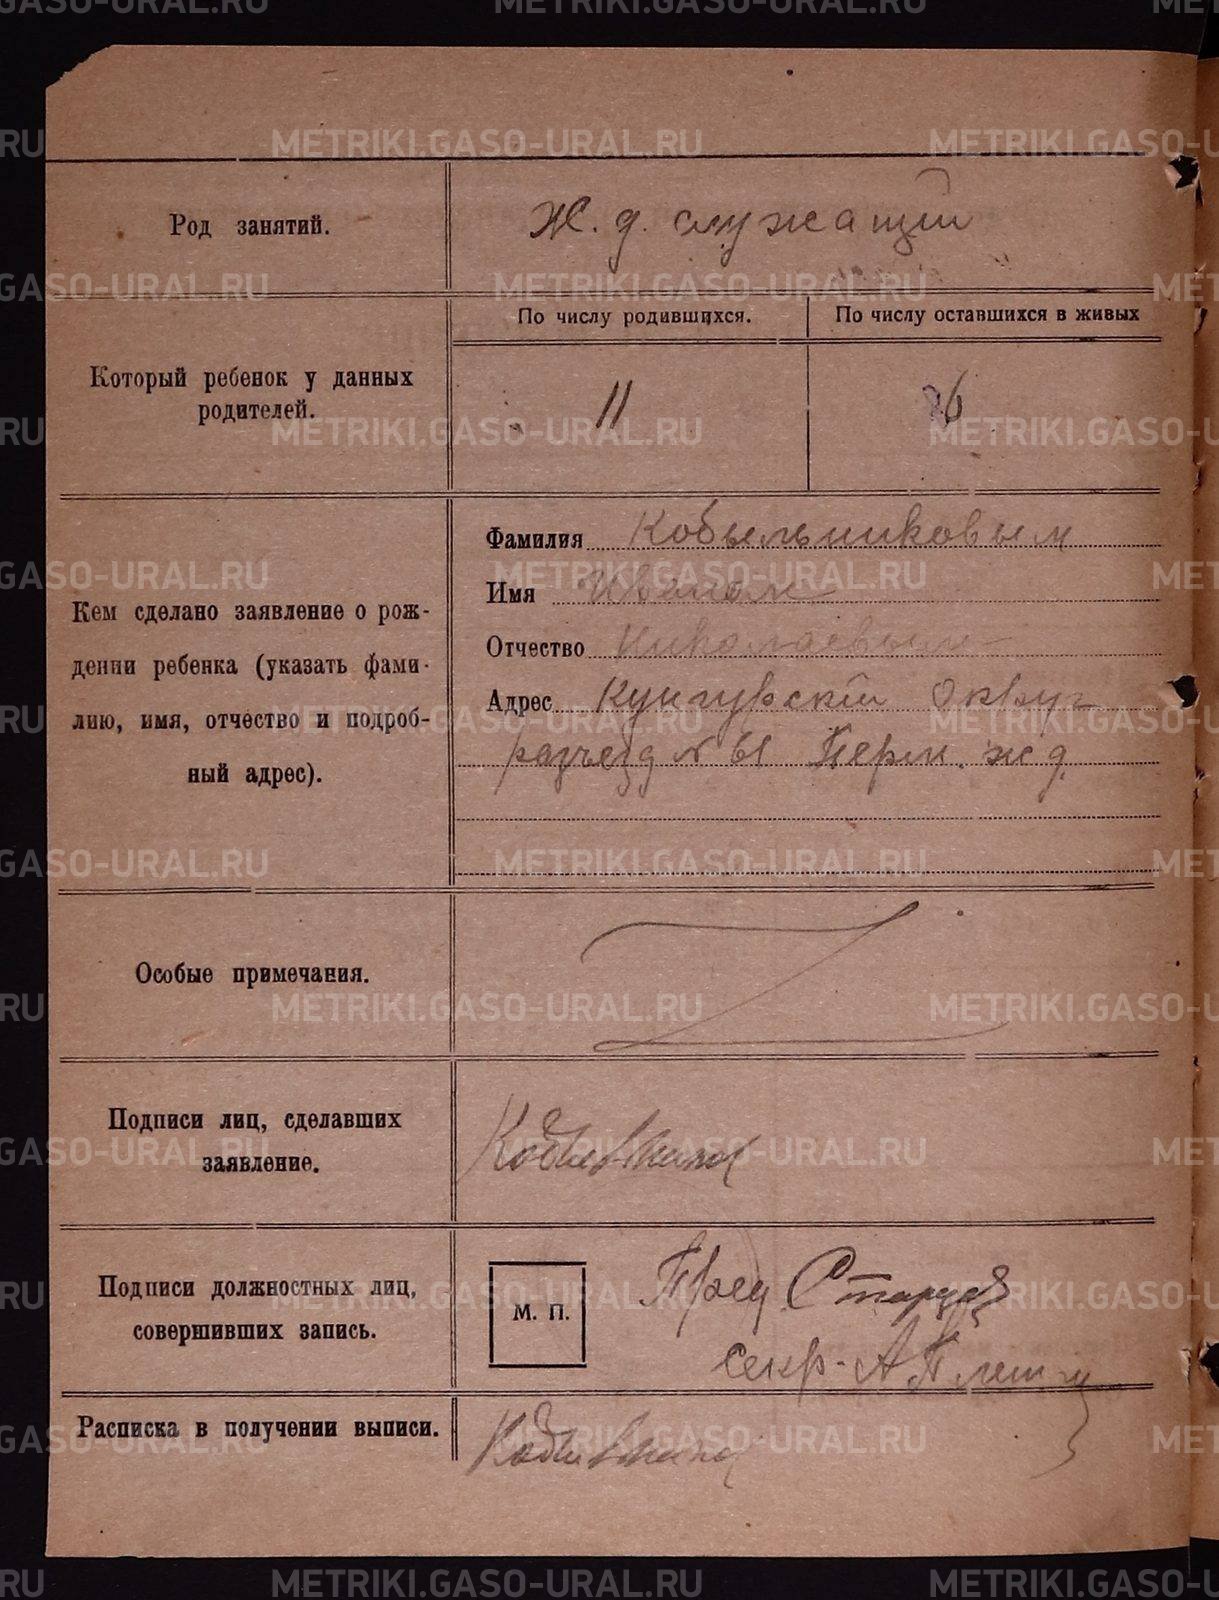 Род занятий.
Ж. д. служащий
По числу родившихся.
По числу оставшихся в живых
Который ребенок у данных
родителей.
11
6
Кем сделано заявление о рож-
дении ребенка (указать фами-
лию, имя, отчество и подроб-
ный адрес).
Фамилия Кобыльниковым
Имя Иваном
Отчество Николаевым
Адрес Кунгурский округ
разъезд № 61 Перм. ж д.
Особые примечания.
Подписи лиц, сделавших
заявление.
Подписи должностных лиц,
совершивших запись.
М. П.
Пред.
секр. А
Расписка в получении выписи.
METRIKI.GASO-URAL.RU